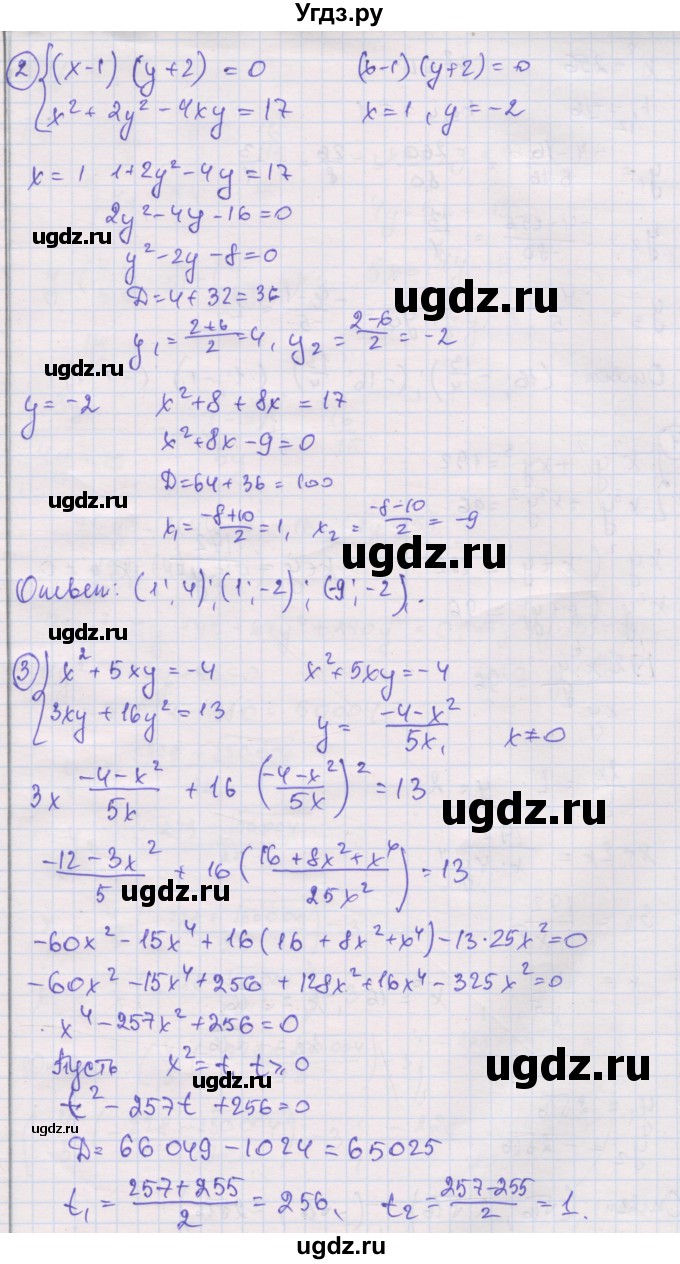 Угдз.ру
2) { (x-1)(y+2) = 0
(x-1)(y+2) = 0
x² + 2y² - 4xy = 17
x = 1, y = -2
x = 1 1+2y² - 4y = 17
2y² - 4y - 16 = 0
ugdz.ru
y² - 2y - 8 = 0
D = 4 + 32 = 36
ugdz.ru
y₁ = (2+6)/2 = 4, y₂ = (2-6)/2 = -2
ugdz.ru
y = -2 x² + 8 + 8x = 17
x² + 8x - 9 = 0
D = 64 + 36 = 100
ugdz.ru
x₁ = (-8+10)/2 = 1, x₂ = (-8-10)/2 = -9
ugdz.ru
Ответ: (1; 4); (1; -2); (-9; -2).
ugdz.ru
3) { x² + 5xy = -4
x² + 5xy = -4
3xy + 16y² = 13
y = (-4-x²)/5x, x ≠ 0
3x (-4-x²)/5x + 16 ((-4-x²)/5x)² = 13
ugdz.ru
(-12-3x²)/5 + 16 ((16+8x²+x⁴)/25x²) = 13
ugdz.ru
-60x² - 15x⁴ + 16(16 + 8x² + x⁴) - 13·25x² = 0
-60x² - 15x⁴ + 256 + 128x² + 16x⁴ - 325x² = 0
x⁴ - 257x² + 256 = 0
Пусть x² = t, t ≥ 0
ugdz.ru
ugdz.ru
t² - 257t + 256 = 0
ugdz.ru
D = 66049 - 1024 = 65025
t₁ = (257+255)/2 = 256, t₂ = (257-255)/2 = 1.
ugdz.ru